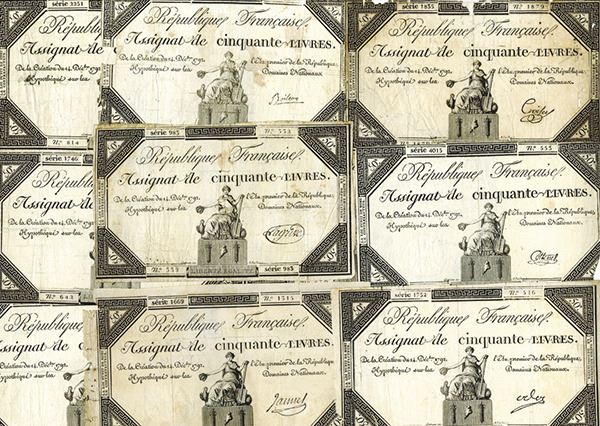 série 3251
République
Assignat de cin
De la Création du 14 Décbre 1792
Hypothéqué sur les
No. 614
République Française.
Assignat de cinquante LIVRES.
De la Création du 14 Décbre 1792. l'An premier de la République,
Hypothéqué sur les Domaines Nationaux.
série 1835 No. 1879
République Française.
Assignat de cinquante LIVRES.
De la Création du 14 Décbre 1792. l'An premier de la République,
Hypothéqué sur les Domaines Nationaux.
série 1746
République
Assignat de
De la Création du 14 Décbre 1792
Hypothéqué sur les
No. 643
série 985 No. 553
République Française.
Assignat de cinquante LIVRES.
De la Création du 14 Décbre 1792. l'An premier de la République,
Hypothéqué sur les Domaines Nationaux.
No. 553 LIBERTÉ EGALITÉ série 985
série 4015 No. 555
République Française.
Assignat de cinquante LIVRES.
De la Création du 14 Décbre 1792. l'An premier de la République,
Hypothéqué sur les Domaines Nationaux.
République
Assignat de cin
De la Création du 14 Décbre 1792
Hypothéqué sur les
série 1669 No. 1515
République Française.
Assignat de cinquante LIVRES.
De la Création du 14 Décbre 1792. l'An premier de la République,
Hypothéqué sur les Domaines Nationaux.
série 1752 No. 516
République Française.
Assignat de cinquante LIVRES.
De la Création du 14 Décbre 1792. l'An premier de la République,
Hypothéqué sur les Domaines Nationaux.